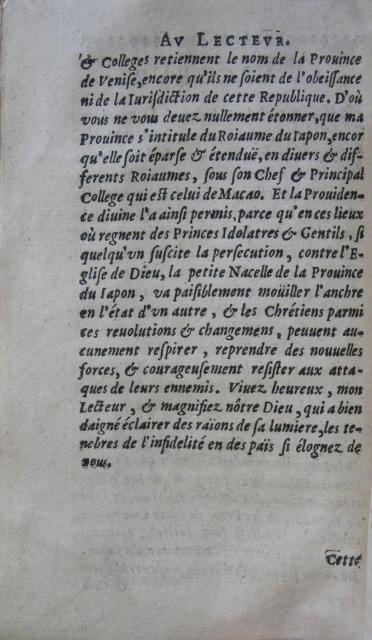 AV LECTEVR.
& Colleges retiennent le nom de la Prouince
de Venise, encore qu'ils ne soient de l'obeissance
ni de la Iurisdiction de cette Republique. D'où
vous ne vous deuez nullement étonner, que ma
Prouince s'intitule du Roiaume du Iapon, encor
qu'elle soit éparse & étenduë, en diuers & dif-
ferents Roiaumes, sous son Chef & Principal
College qui est celui de Macao. Et la Prouiden-
ce diuine l'a ainsi permis, parce qu'en ces lieux
où regnent des Princes Idolatres & Gentils, si
quelqu'vn suscite la persecution, contre l'E-
glise de Dieu, la petite Nacelle de la Prouince
du Iapon, va paisiblement moüiller l'anchre
en l'état d'vn autre, & les Chrétiens parmi
ces reuolutions & changemens, peuuent au-
cunement respirer, reprendre des nouuelles
forces, & courageusement resister aux atta-
ques de leurs ennemis. Viuez heureux, mon
Lecteur, & magnifiez nôtre Dieu, qui a bien
daigné éclairer des raïons de sa lumiere, les te-
nebres de l'infidelité en des païs si élognez de
nous.
Cette